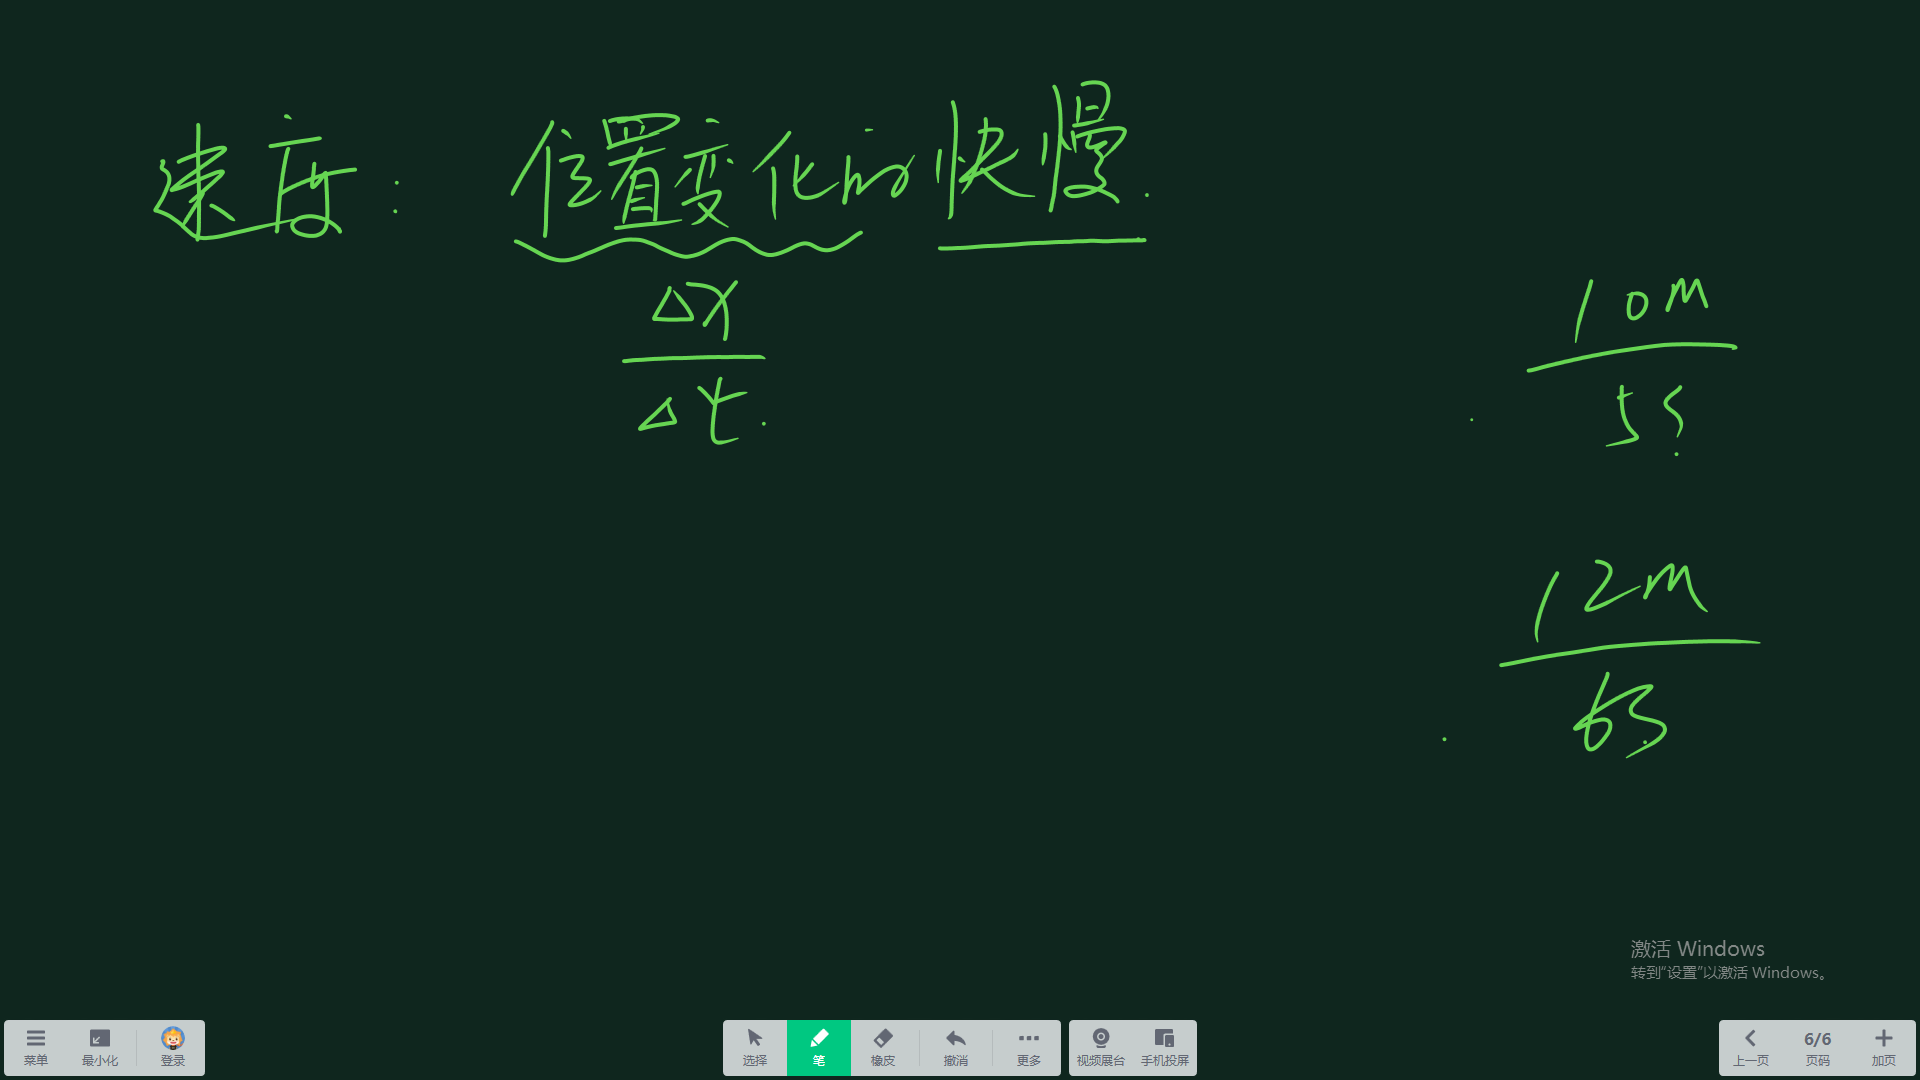 速度: 位置变化的快慢.
Δx
Δt.
10m
5s
12m
6s
激活 Windows
转到“设置”以激活 Windows。
菜单 最小化 登录 选择 笔 橡皮 撤消 更多 视频展台 手机投屏 上一页 6/6 页码 加页